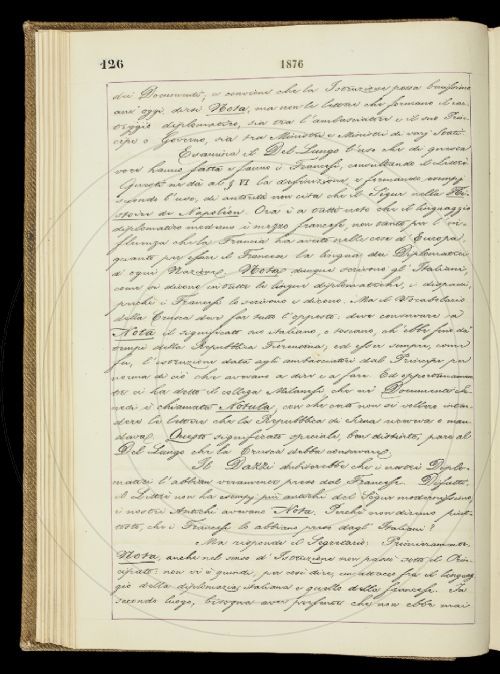 126
1876
dei Documenti; e conviene che la Istruzione possa benissimo
anc' oggi dirsi Nota, ma non le lettere che formano il car-
teggio diplomatico, sia tra l'ambasciatore e il suo Prin-
cipe o Governo, sia tra Ministri e Ministri di varj Stati.
Esamina il Del Lungo l'uso che di questa
voce hanno fatto e fanno i Francesi, consultando il Littré.
Questi ne dà al § VI la definizione, e formando esempj
secondo l'uso, di autorità non cita che il Ségur nella Hi-
stoire de Napoléon. Ora è a tutti noto che il linguaggio
diplomatico moderno è mezzo francese, non tanto per l'in-
fluenza che la Francia ha avuto nelle cose d'Europa,
quanto per essere il Francese la lingua dei Diplomatici
di ogni Nazione. Nota dunque scrivono gl'Italiani,
come si dicono in tutte le lingue diplomatiche, i dispacci,
perchè i Francesi lo scrivono e dicono. Ma il Vocabolario
della Crusca deve far tutto l'opposto: deve conservare a
Nota il significato suo italiano, e toscano, ch'ebbe fin da'
tempi della Repubblica Fiorentina; ed esser sempre, come
fu, l'istruzione data agli ambasciatori dal Principe per
norma di ciò che avevano a dire e a fare. Ed opportunamen-
te ci ha detto il collega Milanesi che nei Documenti Se-
nesi è chiamata Notula, con che certo non si vollero inten-
dere le lettere che la Repubblica di Siena riceveva o man-
dava. Questo significato speciale, ben distinto, pare al
Del Lungo che la Crusca debba conservare.
Il Dazzi dubiterebbe che i nostri Diplo-
matici l'abbiano veramente preso dal Francese. Difatto,
il Littré non ha esempj più antichi del Ségur modernissimo,
i nostri Antichi avevano Nota. Perchè non diremo piut-
tosto, che i Francesi lo abbiano preso dagl'Italiani?
Ma risponde il Segretario: Primieramente
Nota, anche nel senso d'Istruzione non passò sotto il Prin-
cipato: non vi è quindi, per così dire, un attacco fra il linguag-
gio della diplomazia italiana e quello della francese. In
secondo luogo, bisogna aver presente che non ebbe mai